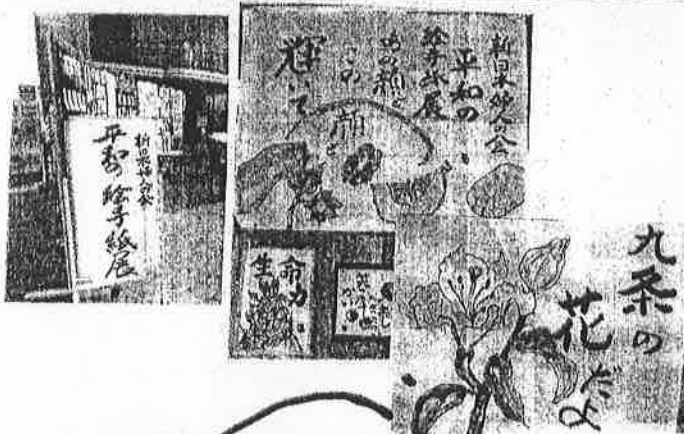 新日本婦人の会
平和の絵手紙展
新日本婦人の会
平和の
絵手紙展
あの顔と
この
顔と
輝いて
生命力
九条の
花だよ